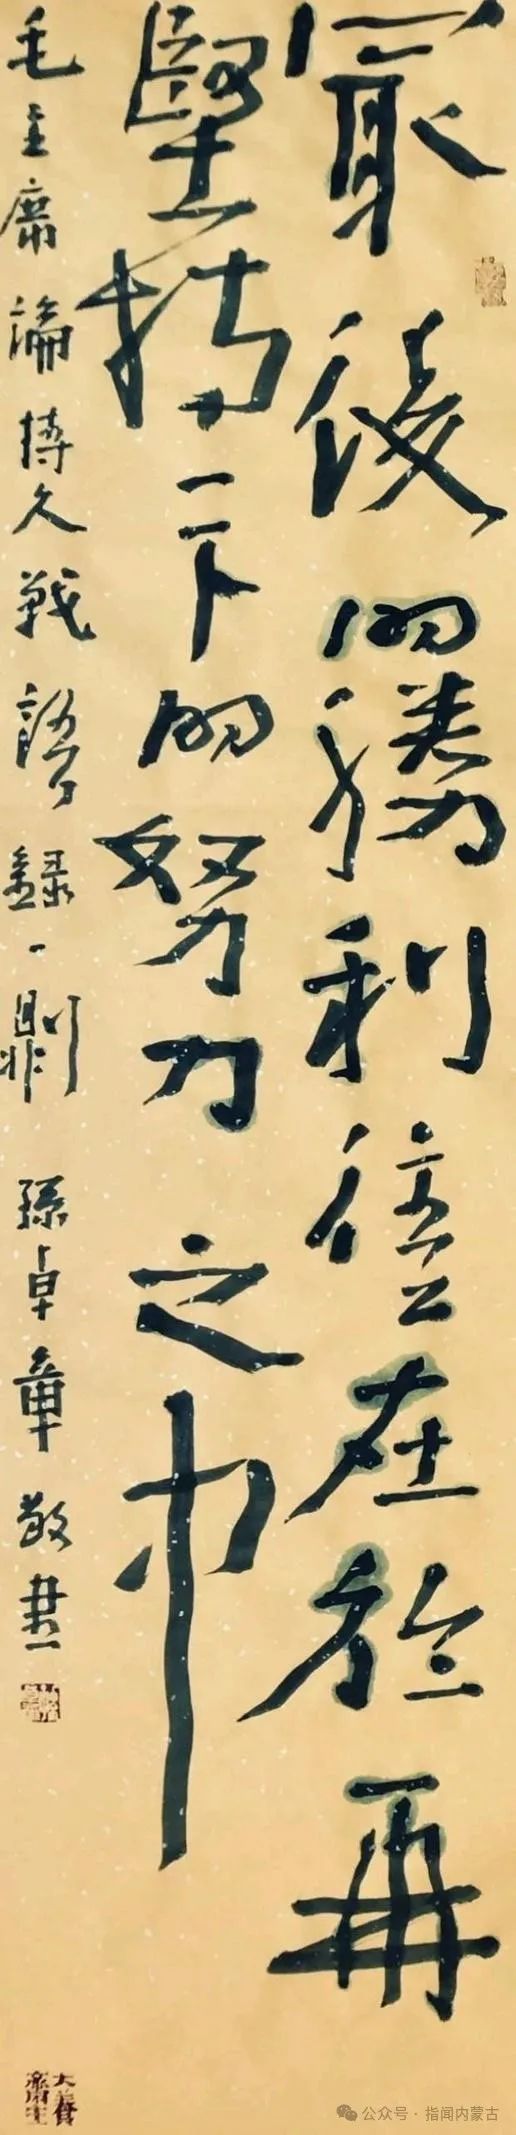 最後的勝利往往在於再
堅持一下的努力之中
毛主席論持久戰語錄一則 孫卓章敬書
公众号 · 指闻内蒙古